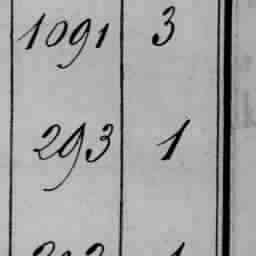 1091 3
293 1